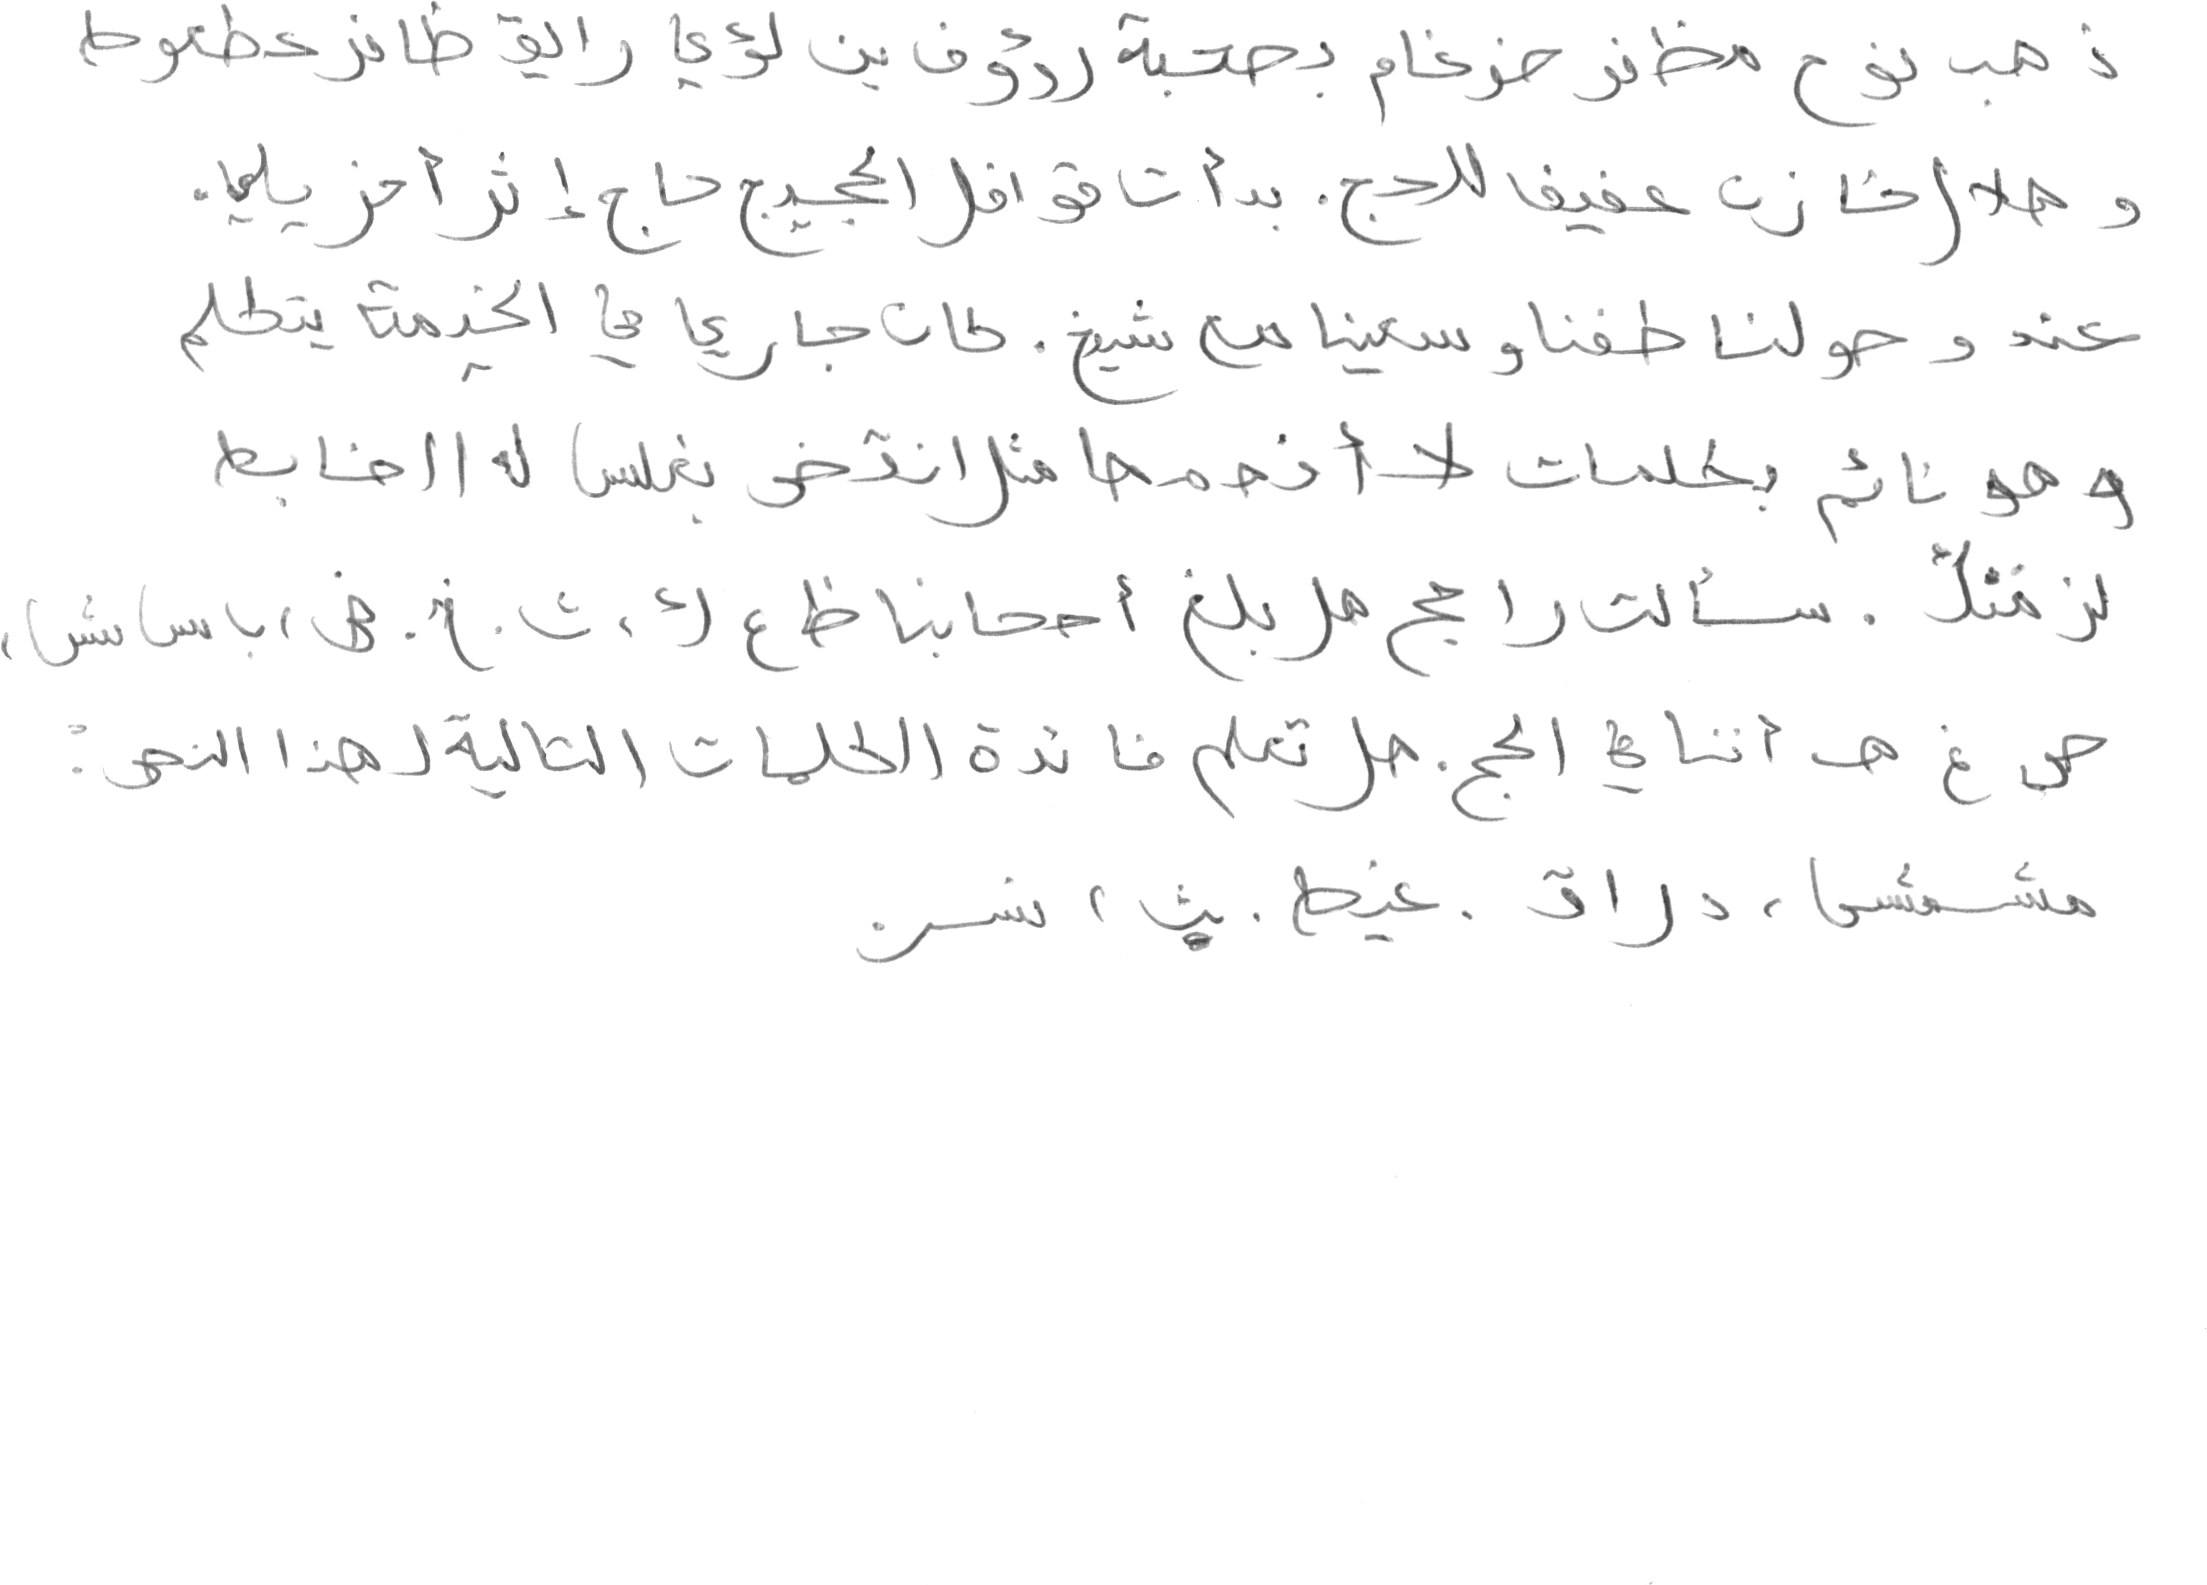 ذهب نوح مظفر ضرغام بصحبة رءوف بن لؤي رايق ظافر عطعوط
وهلال خازن عفيف للحج. بدأت قوافل الحجيج حاج إثر آخر يلي.
عند وصولنا طفنا وسعينا مع شيخ. كان جاري في الخيمة يتكلم
وهو نائم بكلمات لا أفهمها مثل انقض بغلس له الضابط
لز مثلٌ. سألت راجح هل بلغ أصحابنا ظ ع ك، ث. غ. ض، ب س ش،
ص غ هـ أننا في الحج. هل تعلم فائدة الكلمات التالية لهذا النص:
مشمش، دراق. غيظ. بث، نسر.